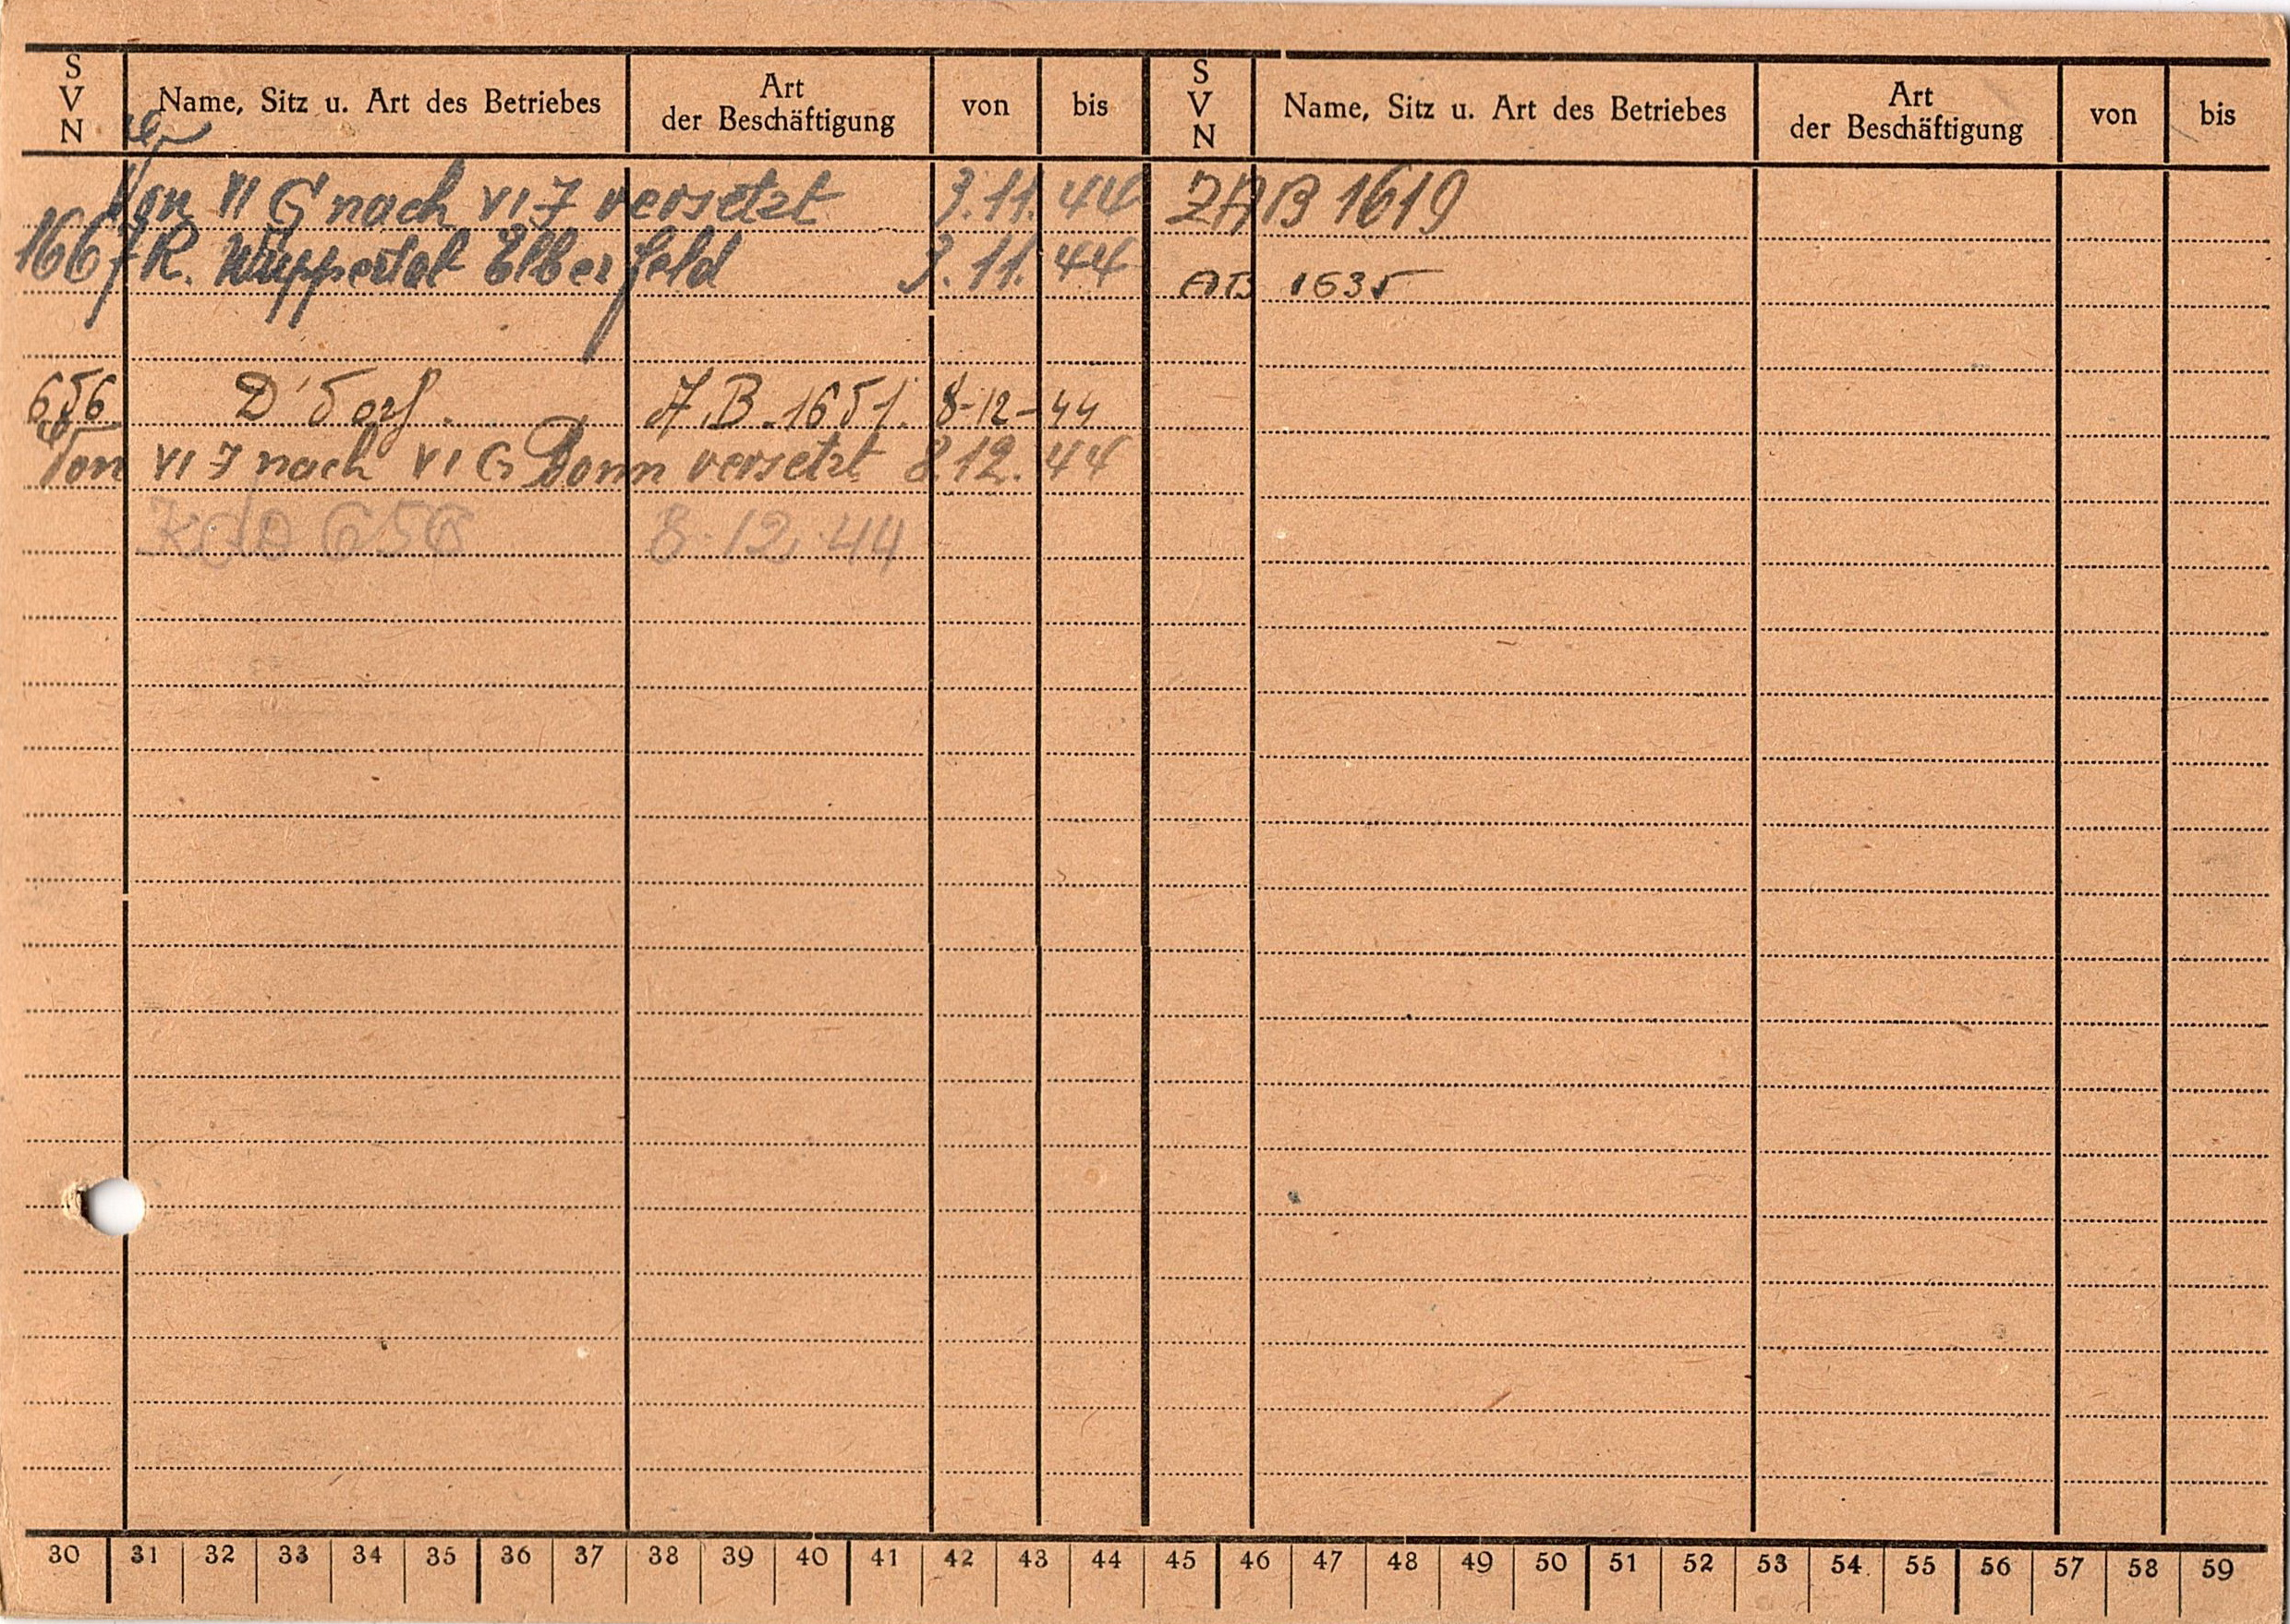 S V N Name, Sitz u. Art des Betriebes Art der Beschäftigung von bis S V N Name, Sitz u. Art des Betriebes Art der Beschäftigung von bis
Von VI G nach VI J versetzt 3.11.44 ZAB 1619
166 R. Wuppertal Elberfeld 3.11.44 AB 1635
656 D'dorf. A.B. 1651. 8-12-44
Von VI J nach VI G Bonn versetzt 8.12.44
656 8.12.44
30 31 32 33 34 35 36 37 38 39 40 41 42 43 44 45 46 47 48 49 50 51 52 53 54 55 56 57 58 59